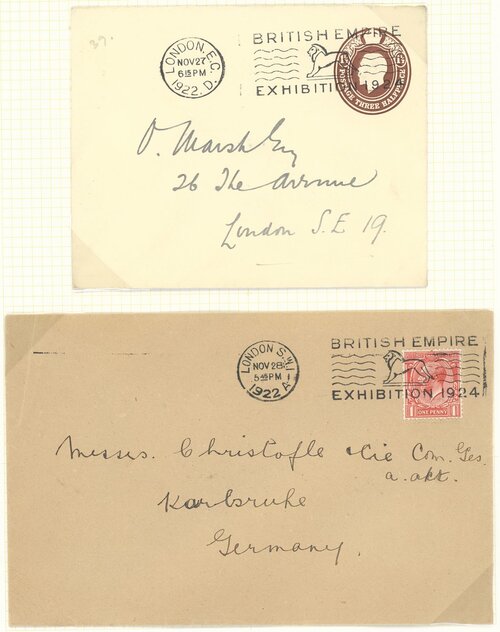 39.
LONDON. E.C.
NOV 27
6 15 PM
1922. D.
BRITISH EMPIRE
EXHIBITION 1924
POSTAGE THREE HALFPENCE
O. Marsh Esq
26 The Avenue
London S.E 19.
LONDON S.W.1
NOV 28
5 45 PM
1922 A
BRITISH EMPIRE
EXHIBITION 1924
1 ONE PENNY 1
Messrs. Christofle & Cie Com. Ges.
a. akt.
Karlsruhe
Germany.